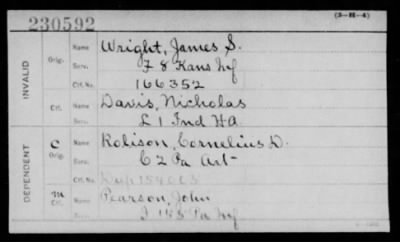 230592
(3-H-4)
INVALID
Orig.
Name Wright, James S.
Serv. F 8 Kans Inf
Ctf. No. 166352
Ctf.
Name Davis, Nicholas
Serv. L 1 Ind H A
DEPENDENT
C
Orig.
Name Robison, Cornelius D.
Serv. C 2 Pa Art
Ctf. No. Dup
m
Ctf.
Name Pearson, John
Serv. Pa Inf